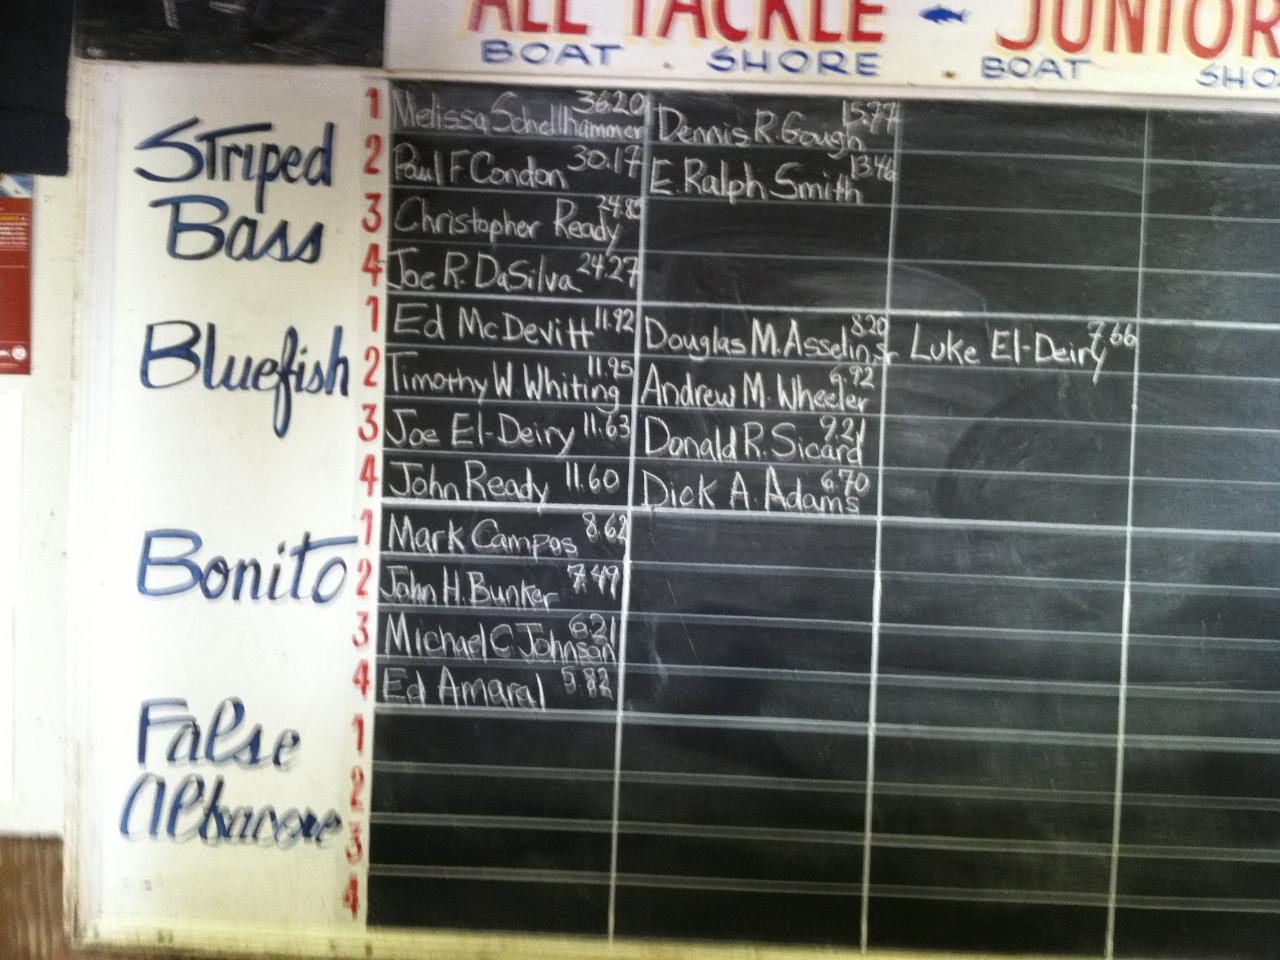 ALL TACKLE - JUNIOR
BOAT . SHORE . BOAT SHO
Striped Bass
1 Melissa Schellhammer 36.20 Dennis R. Gough 15.77
2 Paul F Condon 30.17 E. Ralph Smith 13.46
3 Christopher Ready 24.83
4 Joe R. DaSilva 24.27
Bluefish
1 Ed McDevitt 11.92 Douglas M. Asselin Jr 8.20 Luke El-Deiry 7.66
2 Timothy W. Whiting 11.95 Andrew M. Wheeler 6.92
3 Joe El-Deiry 11.63 Donald R. Sicard 9.21
4 John Ready 11.60 Dick A. Adams 6.70
Bonito
1 Mark Campos 8.62
2 John H. Bunker 7.49
3 Michael C Johnson 6.21
4 Ed Amaral 5.82
False Albacore
1
2
3
4